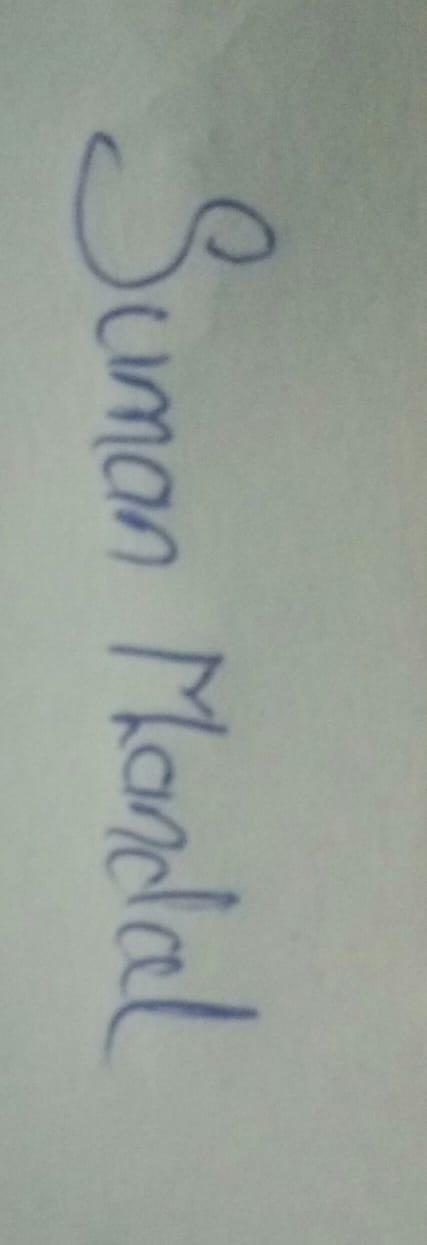 Suman Mandal